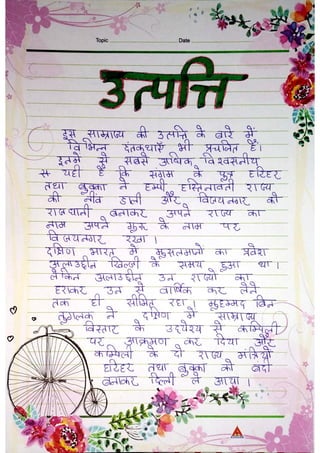 Topic Date
उत्पत्ति
इस साम्राज्य की उत्पत्ति के बारे में
विभिन्न दंतकथाएँ भी प्रचलित हैं।
इनमें से सबसे अधिक विश्वसनीय
यही है कि संगम के पुत्र हरिहर
तथा बुक्का ने हम्पी हस्तिनावती राज्य
की नींव डाली और विजयनगर को
राजधानी बनाकर अपने राज्य का
नाम अपने गुरु के नाम पर
विजयनगर रखा।
दक्षिण भारत में मुसलमानों का प्रवेश
अलाउद्दीन खिलजी के समय हुआ था।
लेकिन अलाउद्दीन उन राज्यों को
हराकर उन से वार्षिक कर लेने
तक ही सीमित रहा। मुहम्मद बिन
तुगलक ने दक्षिण में साम्राज्य
विस्तार के उद्देश्य से काम्पिली
पर आक्रमण कर दिया और
काम्पिली के दो राज्य मंत्रियों
हरिहर तथा बुक्का को बंदी
बनाकर दिल्ली ले आया।